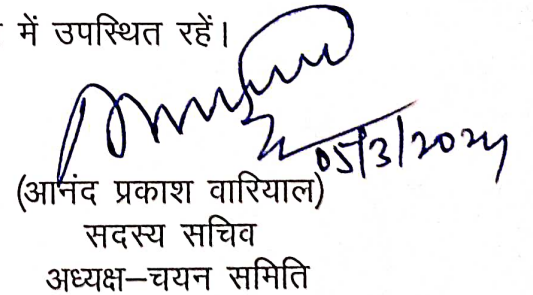 में उपस्थित रहें।
05/3/2024
(आनंद प्रकाश वारियाल)
सदस्य सचिव
अध्यक्ष–चयन समिति